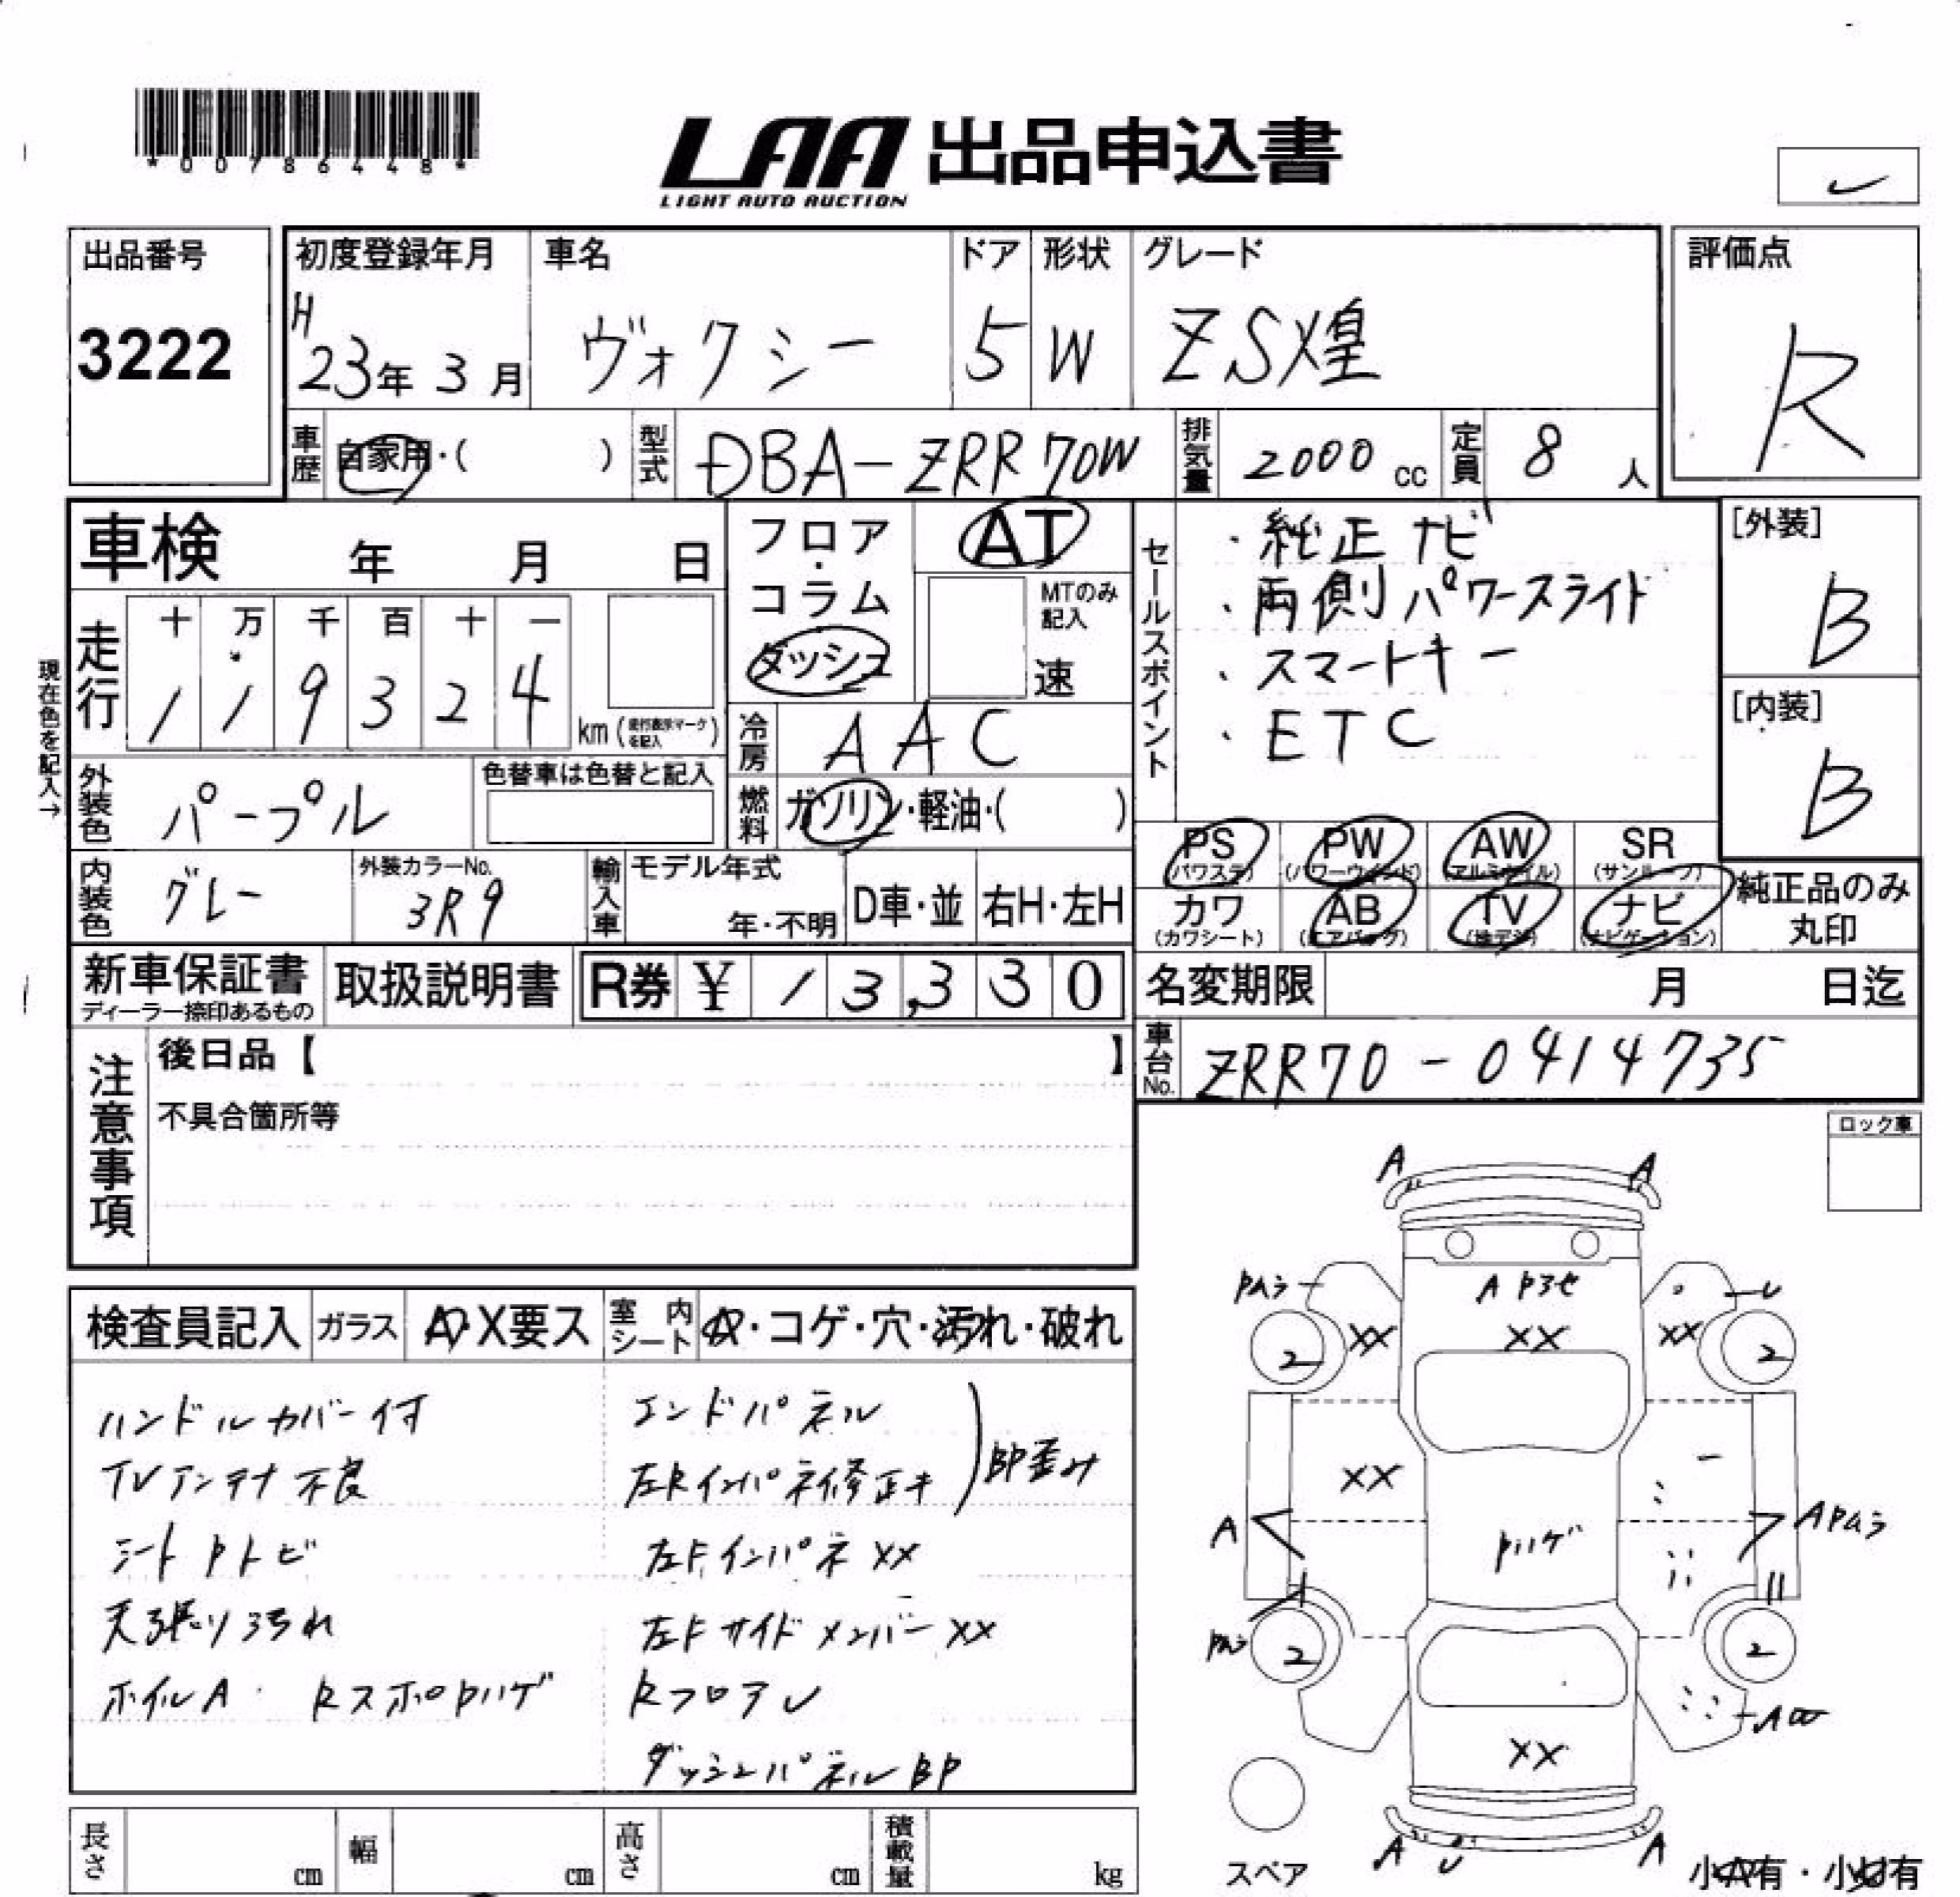 *00786448*
LAA 出品申込書
LIGHT AUTO AUCTION
出品番号
3222
初度登録年月
H
23年 3月
車名
ヴォクシー
ドア
5
形状
W
グレード
ZS煌
評価点
R
車歴
自家用・( )
型式
DBA-ZRR70W
排気量
2000 cc
定員
8 人
車検 年 月 日
フロア・コラム
ダッシュ
AT
MTのみ記入
速
セールスポイント
・純正ナビ
・両側パワースライド
・スマートキー
・ETC
[外装]
B
[内装]
B
現在色を記入→
走行
十 万 千 百 十 一
1 1 9 3 2 4
km(走行表示マークを記入)
冷房
AAC
外装色
パープル
色替車は色替と記入
燃料
ガソリン・軽油・( )
PS (パワステ)
PW (パワーウィンド)
AW (アルミホイル)
SR (サンルーフ)
カワ (カワシート)
AB (エアバッグ)
TV (地デジ)
ナビ (ナビゲーション)
純正品のみ
丸印
内装色
グレー
外装カラーNo.
3R9
輸入車
モデル年式
年・不明
D車・並
右H・左H
新車保証書
ディーラー捺印あるもの
取扱説明書
R券 ¥ 13,330
名変期限 月 日迄
車台No.
ZRR70-0414735
注意事項
後日品【 】
不具合箇所等
ロック車
検査員記入
ガラス
A・X要ス
室内シート
A・コゲ・穴・汚れ・破れ
ハンドルカバー付
TVアンテナ不良
シートPトビ
天張り汚れ
ホイルA・ RスポPハゲ
エンドパネル
左Rインパネ修正キ
BP歪み
左Fインパネ XX
左Fサイドメンバー XX
Rフロア U
ダッシュパネル BP
A
A
Pムラ
A
U
XX
XX
XX
2
2
XX
A
Pハゲ
APムラ
Pムラ
2
2
XX
A
U
A
スペア
小A有・小U有
長さ cm
幅 cm
高さ cm
積載量 kg